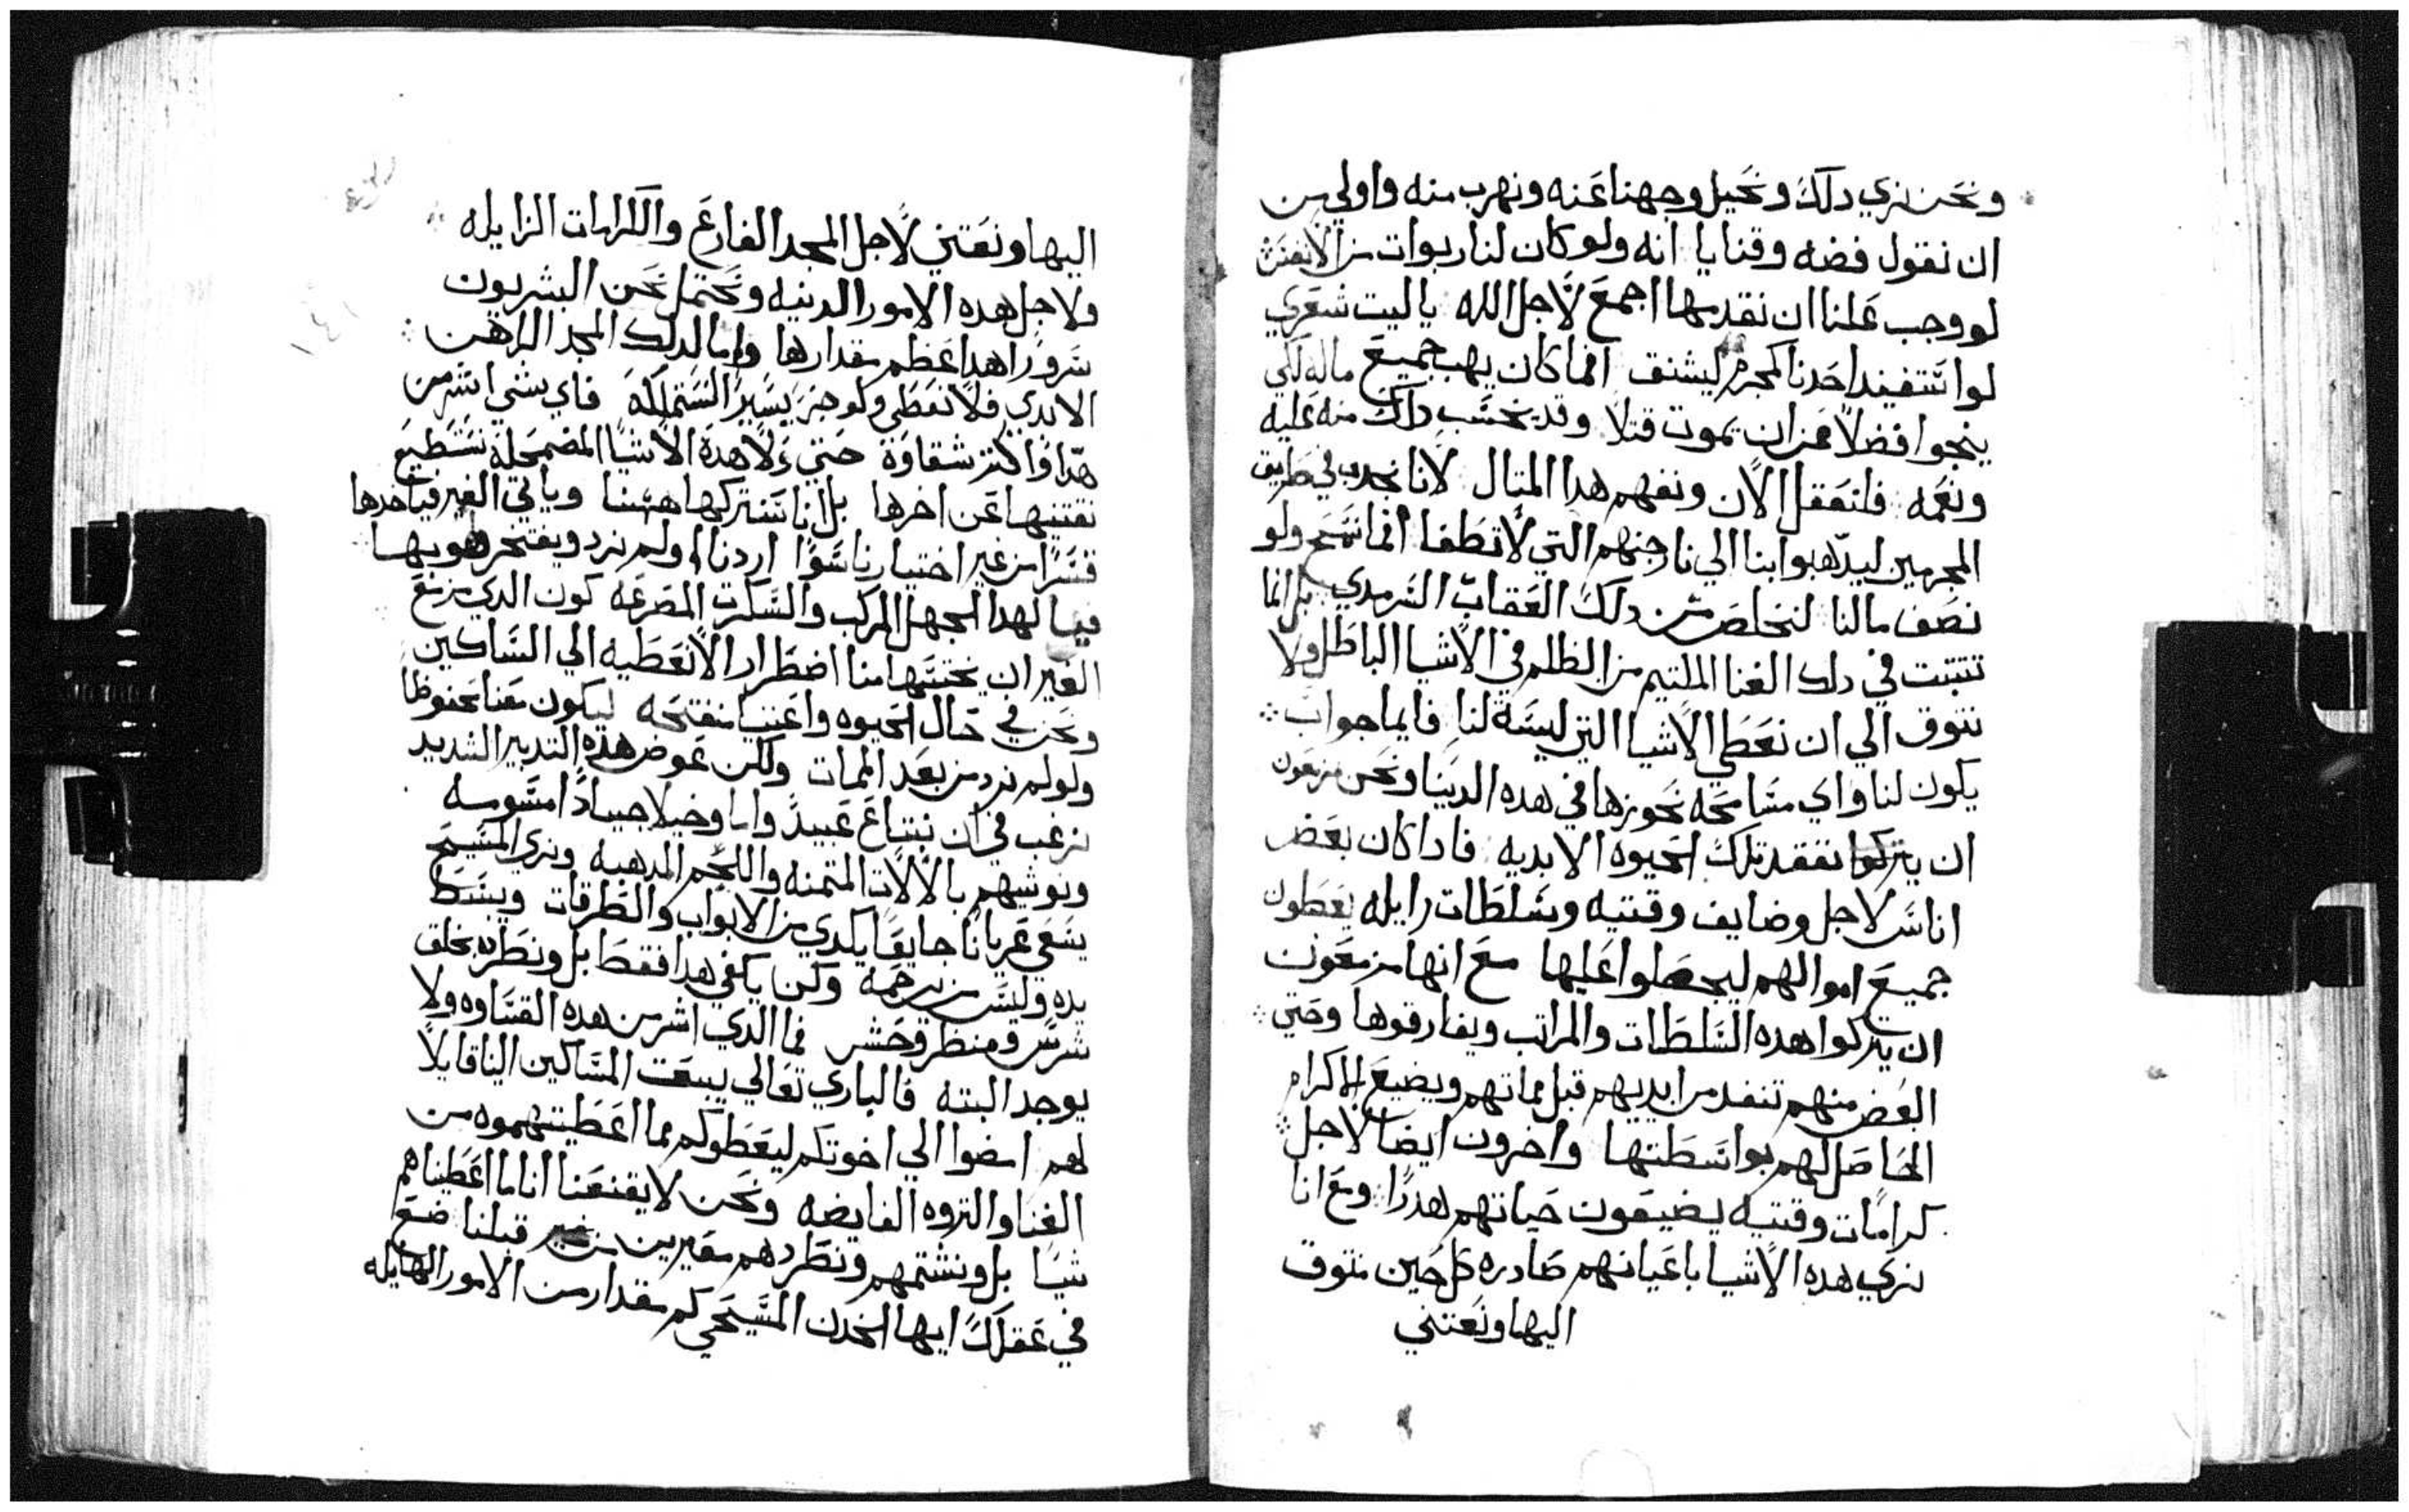 ونحن نري دلك ونحيل وجهنا عنه ونهرب منه واولي من
ان نقول فضه وقنايا انه ولو كان لنا ربوات من الانفس
لو وجب علينا ان نقدمها اجمع لاجل الله ياليت شعري
لو استفيد احدنا كمجرم ليشنق افما كان يهب جميع ماله لكي
ينجوا فضلا من ان يموت قتلا وقد يحسب دلك منه عليه
ونعمه فلنعقل الان ونفهم هدا المتال لانا نجدب في طريق
المجرمين ليدهبوا بنا الي نار جهنم التي لاتطفا افما نسمح ولو
نصف مالنا لنخلص من دلك العقاب السرمدي بل انما
تتتبت في دلك الغنا الملتيم من الظلم في الاشيا الباطل ولا
نتوق الي ان نعطي الاشيا التي ليسة لنا فايما جواب
يكون لنا واي مسامحه نحوزها في هده الدينا ونحن مزمعون
ان يتركوا نفقد تلك الحيوه الابديه فادا كان بعض
اناس لاجل وضايف وقتيه وسلطات زايله يعطون
جميع اموالهم ليحصلوا عليها مع انها مزمعون
ان يتركوا هده السلطات والمراتب ويفارقوها وحتي
البعض منهم تنفد من ايديهم قبل مماتهم ويضيع الاكرام
الحاصل لهم بواسطتها واخرون ايضا لاجل
كرامات وقتيه يضيعون حياتهم هدرا ومع انا
نري هده الاشيا باعيانهم صادره كل حين نتوق
اليها ونعتني
اليها ونعتني لاجل المجد الفارغ والكرامات الزايله
ولاجل هده الامور الدنيه ونحتمل نحن البشريون
شرورا هدا عظم مقدارها واما لدلك المجد الراهن
الابدي فلا نعطي ولو جز يسير لنستملكه فاي شي اشر من
هدا واكتر شقاوة حتي ولا هدة الاشيا المضمحلة نستطيع
نقتنيها عن اخرها بل انا نتركها ههنا وياتي الغير فياخدها
قسرا من غير اختيارنا سوا اردنا او لم نرد ويفتخر هو بها
فيا لهدا الجهل المركب والسكرت المصرعه كون الدي مزمع
الغير ان يختنها منا اضطرارا لانعطيه الي المساكين
ونحن في حال الحيوه واعنيا منفتحه ليكون معنا محفوظا
ولو لم نرد من بعد الممات ولكن عوض هده التدبير الشديد
نرغب في ان نبتاع عبيد واما وخيلا جيادا مسوسه
ونوشيهم بالالات المتمنه واللجم المدهبه ونري المسيح
يسعي عريانا جايعا يكدي من الابواب والطرقات ويبسط
يده وليس من يرحمه ولكن يكفي هدا فقط بل ونطرده بخلق
شرس ومنظر وحش فما الدي اشر من هده القساوه ولا
يوجد البته فالباري تعالي يبعت المساكين الينا قايلا
لهم امضوا الي اخوتكم ليعطوكم مما اعطيتهموه من
الغنا والتروه الفايضه ونحن لايقنعنا انا ما اعطيناهم
شيا بل ونشتمهم ونطردهم معيرين من غير قبلنا ضع
في عقلك ايها الخدن المسيحي كم مقدار من الامور الهايله